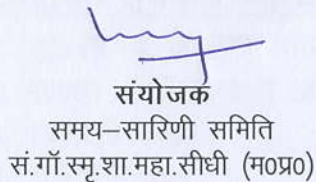 संयोजक
समय–सारिणी समिति
सं.गॉ.स्मृ.शा.महा.सीधी (म0प्र0)